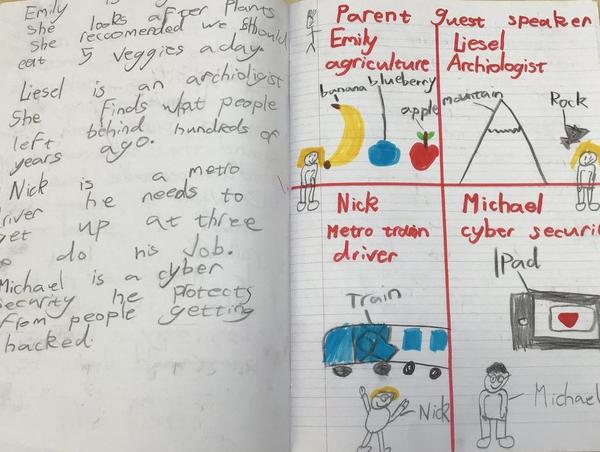 Emily looks after Plants
She
She reccomended we should
eat 5 veggies a day.
Liesel is an archioligist
She finds what people
left behind hundreds of
years ago.
Nick is a metro
driver he needs to
get up at three
do his Job.
Michael is a cyber
security he protects
from people getting
hacked.
Parent guest speaker
Emily
agriculture
banana
blueberry
apple
Liesel
Archiologist
mountain
Rock
Nick
Metro train
driver
Train
Nick
Michael
cyber securi
IPad
Michael